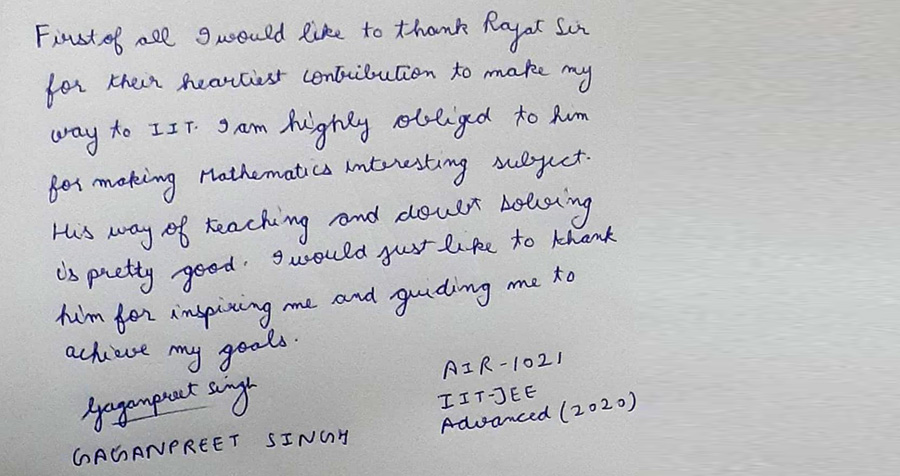 First of all I would like to thank Rajat Sir
for their heartiest contribution to make my
way to IIT. I am highly obliged to him
for making Mathematics interesting subject.
His way of teaching and doubt solving
is pretty good. I would just like to thank
him for inspiring me and guiding me to
achieve my goals.
Gaganpreet Singh
GAGANPREET SINGH
AIR-1021
IIT-JEE
Advanced (2020)